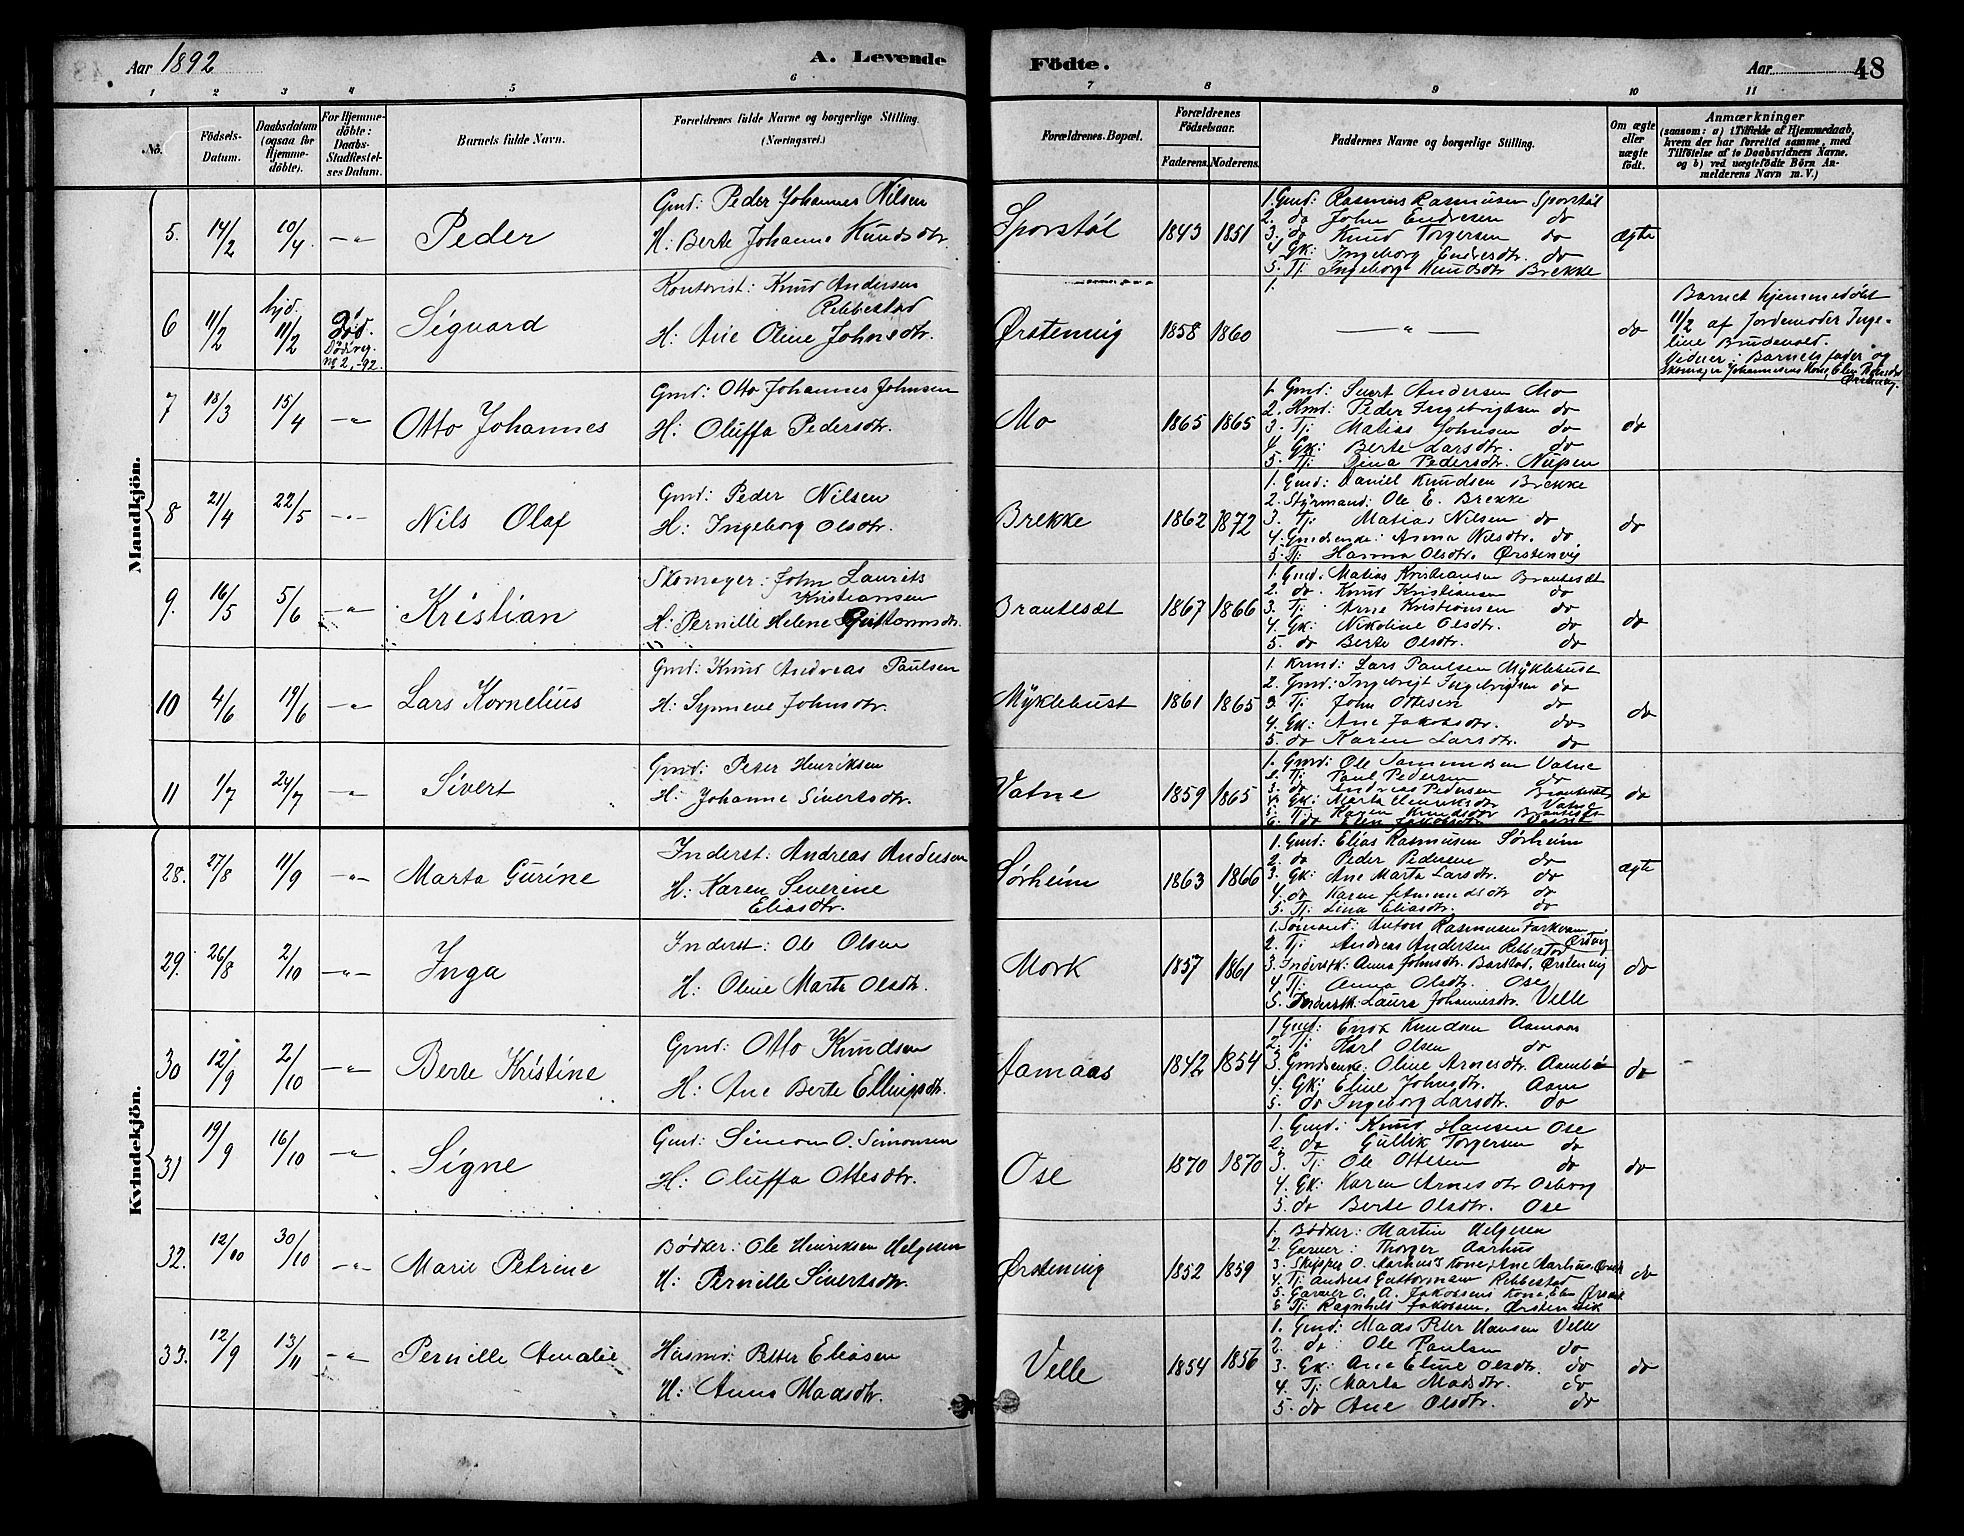 Aar 1892
A. Levende
Födte.
Aar 48
1 2 3 4 5 6 7 8 9 10 11
No.
Födsels-Datum.
Daabsdatum (ogsaa for Hjemmedöbte).
For Hjemmedöbte: Daabs-Stadfæstelses Datum.
Barnets fulde Navn.
Forældrenes fulde Navne og borgerlige Stilling.
(Næringsvei.)
Forældrenes Bopæl.
Forældrenes Födselsaar.
Faderens. Moderens.
Faddernes Navne og borgerlige Stilling.
Om ægte eller uægte födt.
Anmærkninger
(saasom: a) i Tilfælde af Hjemmedaab, hvem der har forrettet samme, med Tilföielse af to Daabsvidners Navne. og b) ved uægtefödte Börn Anmelderens Navn m. V.)
Mandkjön.
5. 14/2 10/4 -"- Peder
Gmd: Peder Johannes Nilsen
H: Berte Johanne Knudsdtr.
Sporstöl 1843 1851
1. Gmd: Rasmus Rasmusen Sporstöl
2. do John Endresen do
3. do Knud Torgersen do
4. Gk: Ingeborg Endresdtr. do
5. Tj: Ingeborg Knudsdtr Brekke
ægte
6 11/2 hjd. 11/2 Död. Dödsreg. No 2, -92. Siguard
Kontorist: Knud Andersen
Rebbestad
H: Ane Oline Johnsdtr.
Ørstenvig 1858 1860
1.
— " —
do
Barnet hjemmedöbt
11/2 af Jordemoder Inge-
line Brudevold.
Vidner: Barnets fader og
Skomager Johannesens Kone, Elen
Ørstenvig.
7 18/3 15/4 -"- Otto Johannes
Gmd: Otto Johannes Johnsen
H: Oluffa Pedersdtr.
Mo 1865 1865
1. Gmd: Sivert Andersen Mo
2. Hmd: Peder Ingebrigtsen do
3. Tj: Matias Johnsen do
4. Gk: Berte Larsdtr. do
5. Tj: Dina Pedersdtr. Nupen
do
8 21/4 22/5 -"- Nils Olaf
Gmd: Peder Nilsen
H: Ingeborg Olsdtr.
Brekke 1862 1872
1. Gmd: Daniel Knudsen Brekke
2. Styrmand: Ole E. Brekke
3. Tj: Matias Nilsen do
4. Gmdsenke: Anna Nilsdtr. do
5. Tj: Hanna Olsdtr. Ørstenvig
do
9. 16/5 5/6 -"- Kristian
Skomager: John Laurits
Kristiansen
H: Pernille Helene Guttormsdtr.
Brautesæt 1867 1866
1. Gmd. Matias Kristiansen Brautesæt
2. do Knud Kristiansen do
3. Tj: Arne Kristiansen do
4. Gk: Nikoline Olsdtr. do
5. do Berte Olsdtr. do
do
10 4/6 19/6 -"- Lars Kornelius
Gmd: Knud Andreas Paulsen
H: Synneve Johnsdtr.
Myklebust 1861 1865
1. Kmd: Lars Paulsen Myklebust
2. Gmd: Ingebrigt Ingebrigtsen do
3. Tj: John Ottesen do
4. Gk: Ane Jakobsdtr. do
5. do Karen Larsdtr. do
do
11 1/7 24/7 -"- Sivert
Gmd: Peter Henriksen
H: Johanne Sivertsdtr.
Vatne 1859 1865
1. Gmd: Ole Samundsen Vatne
2. Tj: Paul Pedersen do
3. do Andreas Pedersen Brautesæt
4. Gk: Marta Henriksdtr Vatne
5. Tj: Karen Knudsdtr Brautesæt
6. Tj: do Elen Jakobsdtr Vatne
do
Kvindekjön.
28. 27/8 11/9 -"- Marta Gurine
Inderst: Andreas Andersen
H: Karen Severine
Eliasdtr.
Sørheim 1863 1866
1. Gmd: Elias Rasmusen Sørheim
2. do Peder Pedersen do
3. Gk: Ane Marta Larsdtr. do
4. do Karen Amundsdtr do
5. Tj: Lina Eliasdtr. do
ægte
29. 26/8 2/10 -"- Inga
Inderst: Ole Olsen
H: Oline Marta Olsdtr.
Mork 1857 1861
1. Sömand: Anton Rasmusen
2. Tj: Andreas Andersen Rebbestad
3. Inderstk: Anna Johnsdtr. Barstad, Ørstenvig
4. Tj: Anna Olsdtr. Ose
5. Inderstk: Laura Johannesdtr. Velle
do
30 12/9 2/10 -"- Berte Kristine
Gmd: Otto Knudsen
H: Ane Berte Ellingsdtr.
Aamaas 1842 1854
1. Gmd: Enok Knudsen Aamaas
2. Tj: Karl Olsen do
3. Gmdsenke: Oline Arnesdtr.
4. Gk: Eline Johnsdtr. Aam
5. do Ingeborg Larsdtr. do
do
31 19/9 16/10 -"- Signe
Gmd: Simon O. Simonsen
H: Oluffa Ottesdtr.
Ose 1870 1870
1. Gmd: Knud Hansen Ose
2. do Gullik Torgersen do
3. Tj: Ole Ottesen do
4. Gk: Karen Arnesdtr Osborg
5. do Berte Olsdtr. Ose
do
32. 12/10 30/10 -"- Marie Petrine
Bödker: Ole Henriksen Helgesen
H: Pernille Sivertsdtr.
Ørstenvig 1852 1859
1. Bödker: Martin Helgesen
2. Garver: Thorger Aarhus
3. Skipper O. Aarhus's Kone, Ane Aarhus,
4. Tj: Andreas Guttormsen Rebbestad
5. Garver O. A. Jakobsens Kone, Elen
6 Tj: Ragnhild Jakobsen, Ørstenvik
do
33. 12/9 13/11 -"- Pernille Amalie
Husmd: Petter Eliasen
H: Anna Madsdtr.
Velle 1854 1856
1. Gmd: Mads Peter Hansen Velle
2. do: Ole Paulsen do
3. Gk: Ane Eline Olsdtr. do
4. Tj: Marta Madsdtr. do
5. do Ane Olsdtr. do
do